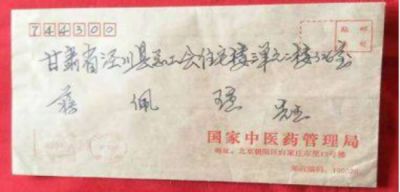 744300
贴邮
票处
甘肃省泾川县总工会住宅楼三单元二楼
佩 先生
国家中医药管理局
地址：北京朝阳区白家庄东里13号楼
邮政编码：100026